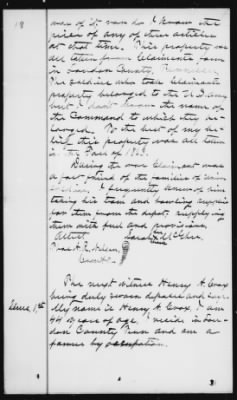 was of it nor do I know the
prices of any of these articles
at that time. This property was
all taken from Claimants farm
in Loudon County, Tennessee.
The soldiers who took Claimants
property belonged to the U.S. Army
but I don't know the name of
the Command to which they be-
longed. To the best of my be-
lief this property was all taken
in the Fall of 1863.
During the war Claimant was
a fast friend of the families of Union
Soldiers, I frequently knew of him
taking his team and hauling supplies
for them from the depot, supplying
them with fuel and provisions.
Attest
The next witness Henry H. Cox
being duly sworn deposes and says
My name is Henry H. Cox. I am
44 years of age, reside in Lou-
don County Tenn and am a
farmer by occupation.